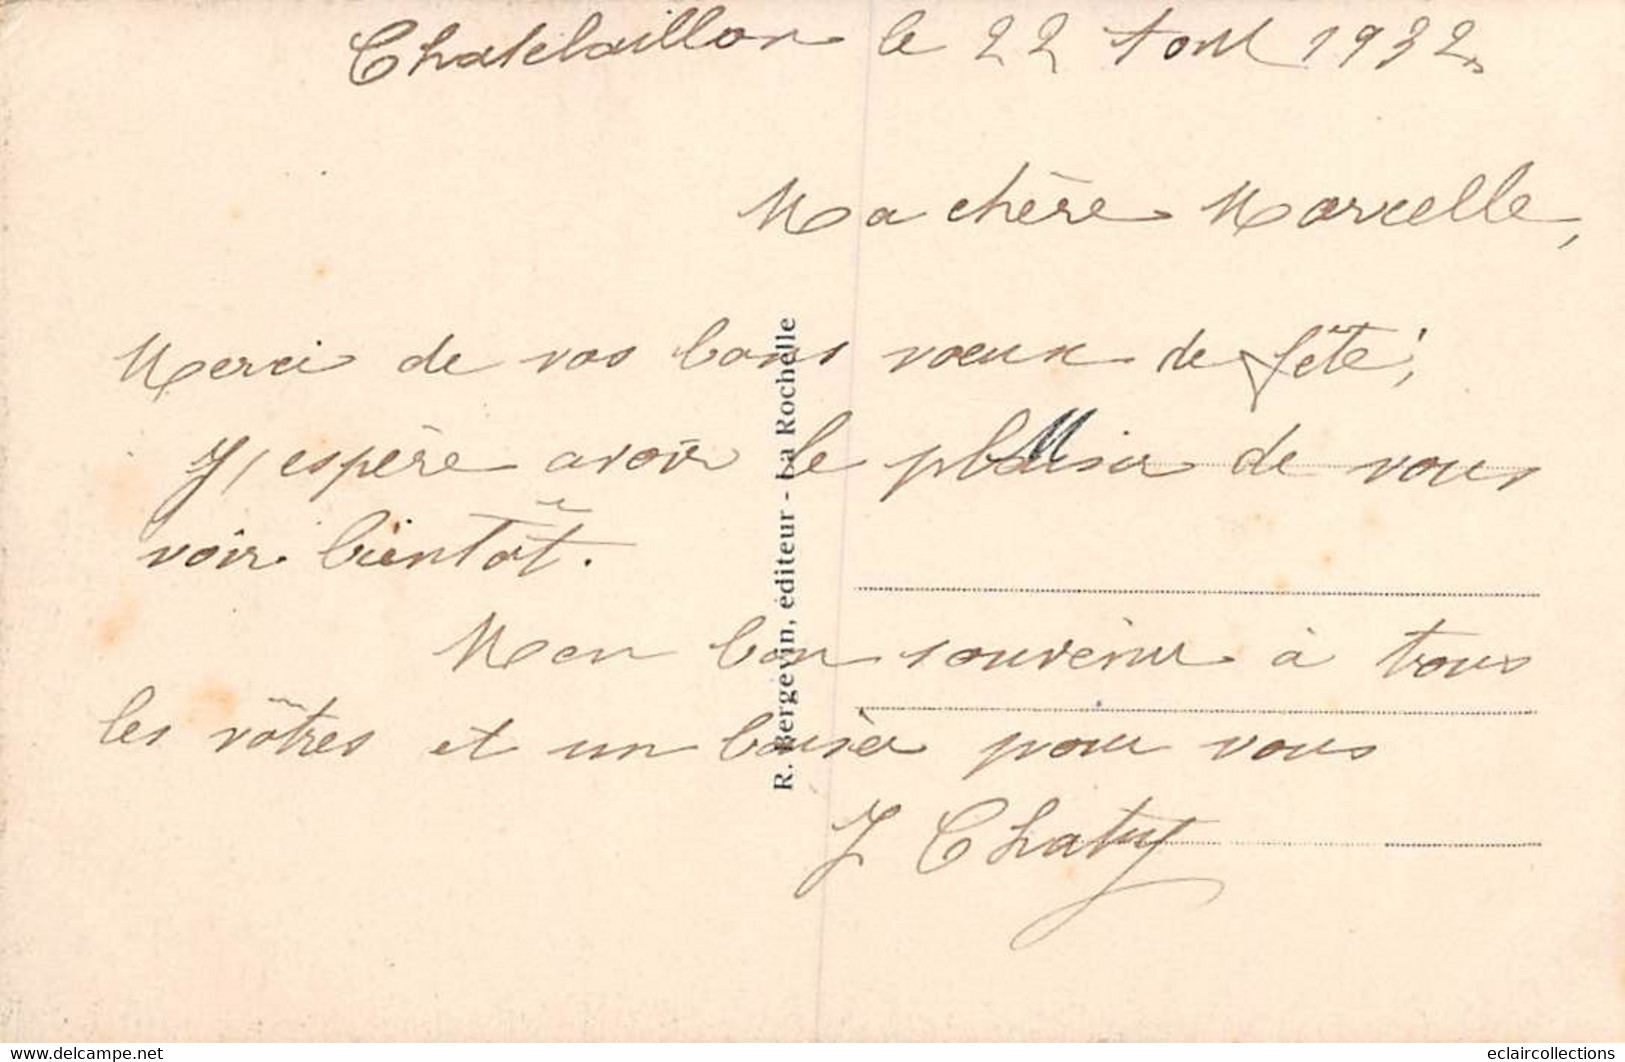 Chatelaillon le 22 Aout 1932
Ma chère Marcelle,
Merci de vos bons vœux de fête;
J'espère avoir le plaisir de vous
voir bientôt.
Mon bon souvenir à tous
les vôtres et un baiser pour vous
J Chaty
R. Bergevin, éditeur - La Rochelle
eclaircollections
www.delcampe.net